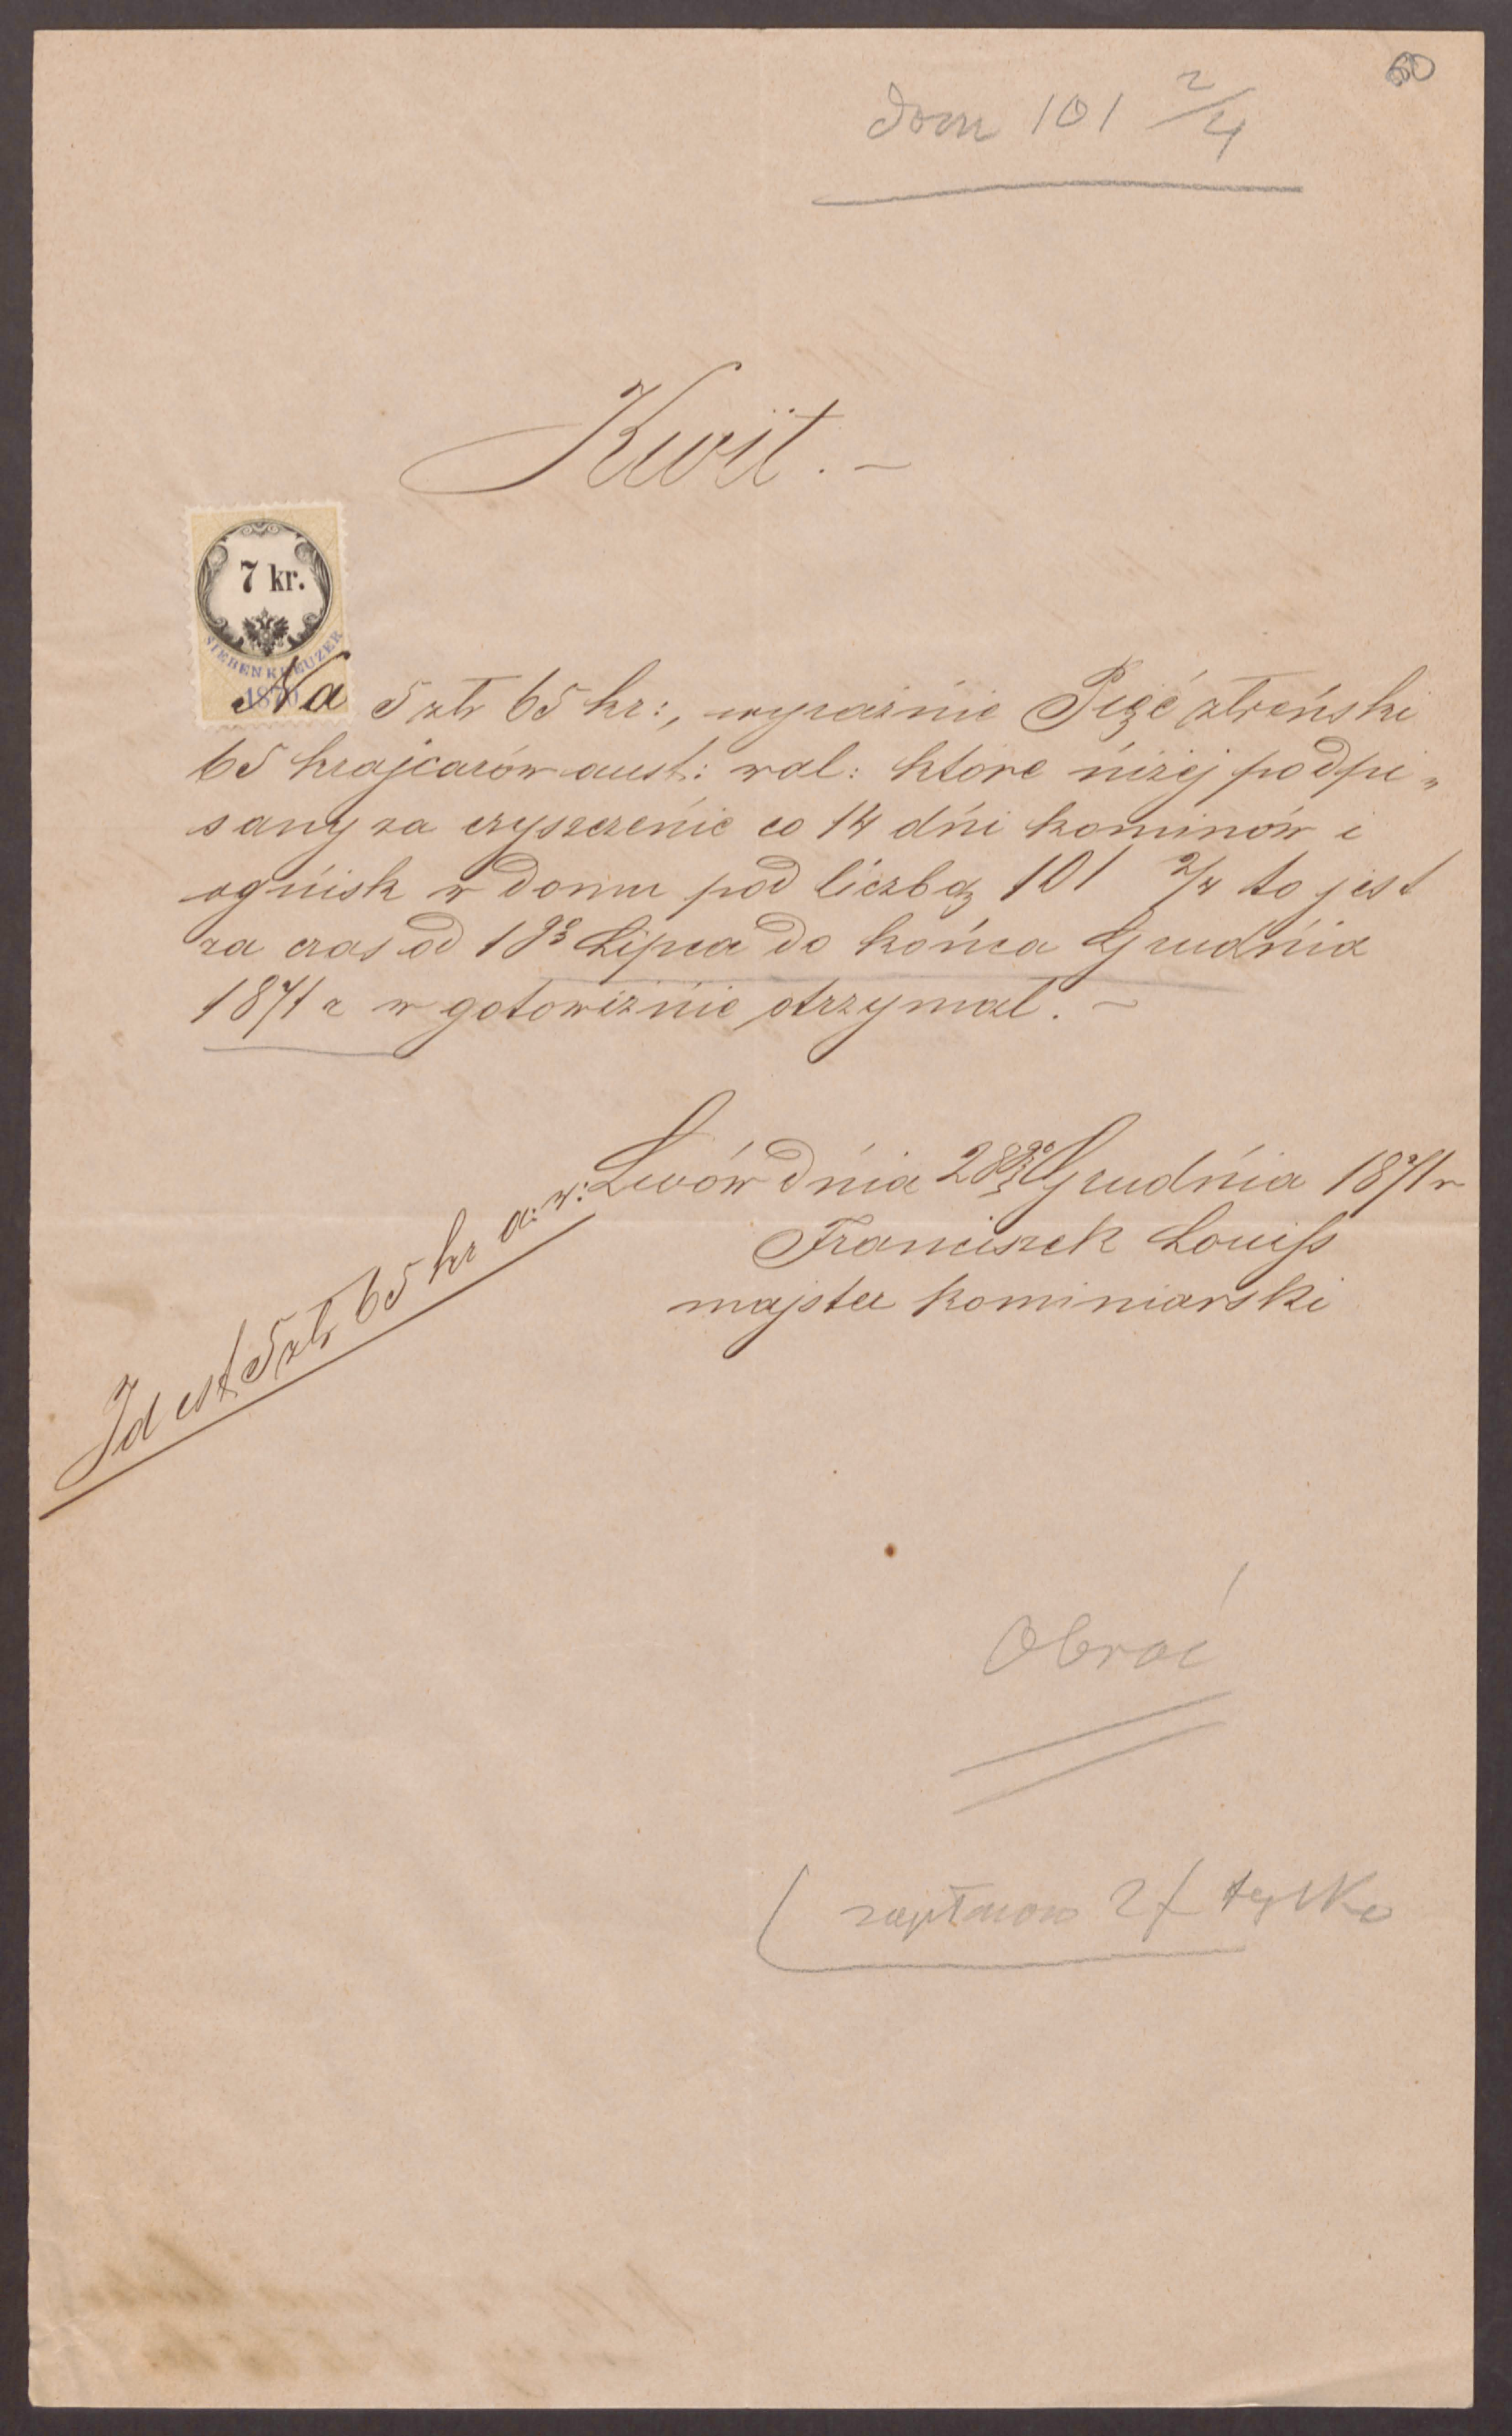 60
dom 101 2/4
Kwit. —
7 kr.
SIEBEN KREUZER
1870
Na 5 złr 65 kr:, wyraźnie Pięć złreński
65 krajcarów aust: wal: które niżej podpi„
sany za czyszczenie co 14 dni kominów i
ognisk w domu pod liczbą 101 2/4 to jest
za czas od 1go Lipca do końca Grudnia
1871 r w gotowiźnie otrzymał. —
Lwów dnia 28go Grudnia 1871 r
Franciszek Louiss
majster kominiarski
Id est 5 złr 65 kr a: w:
Obróć
tylko